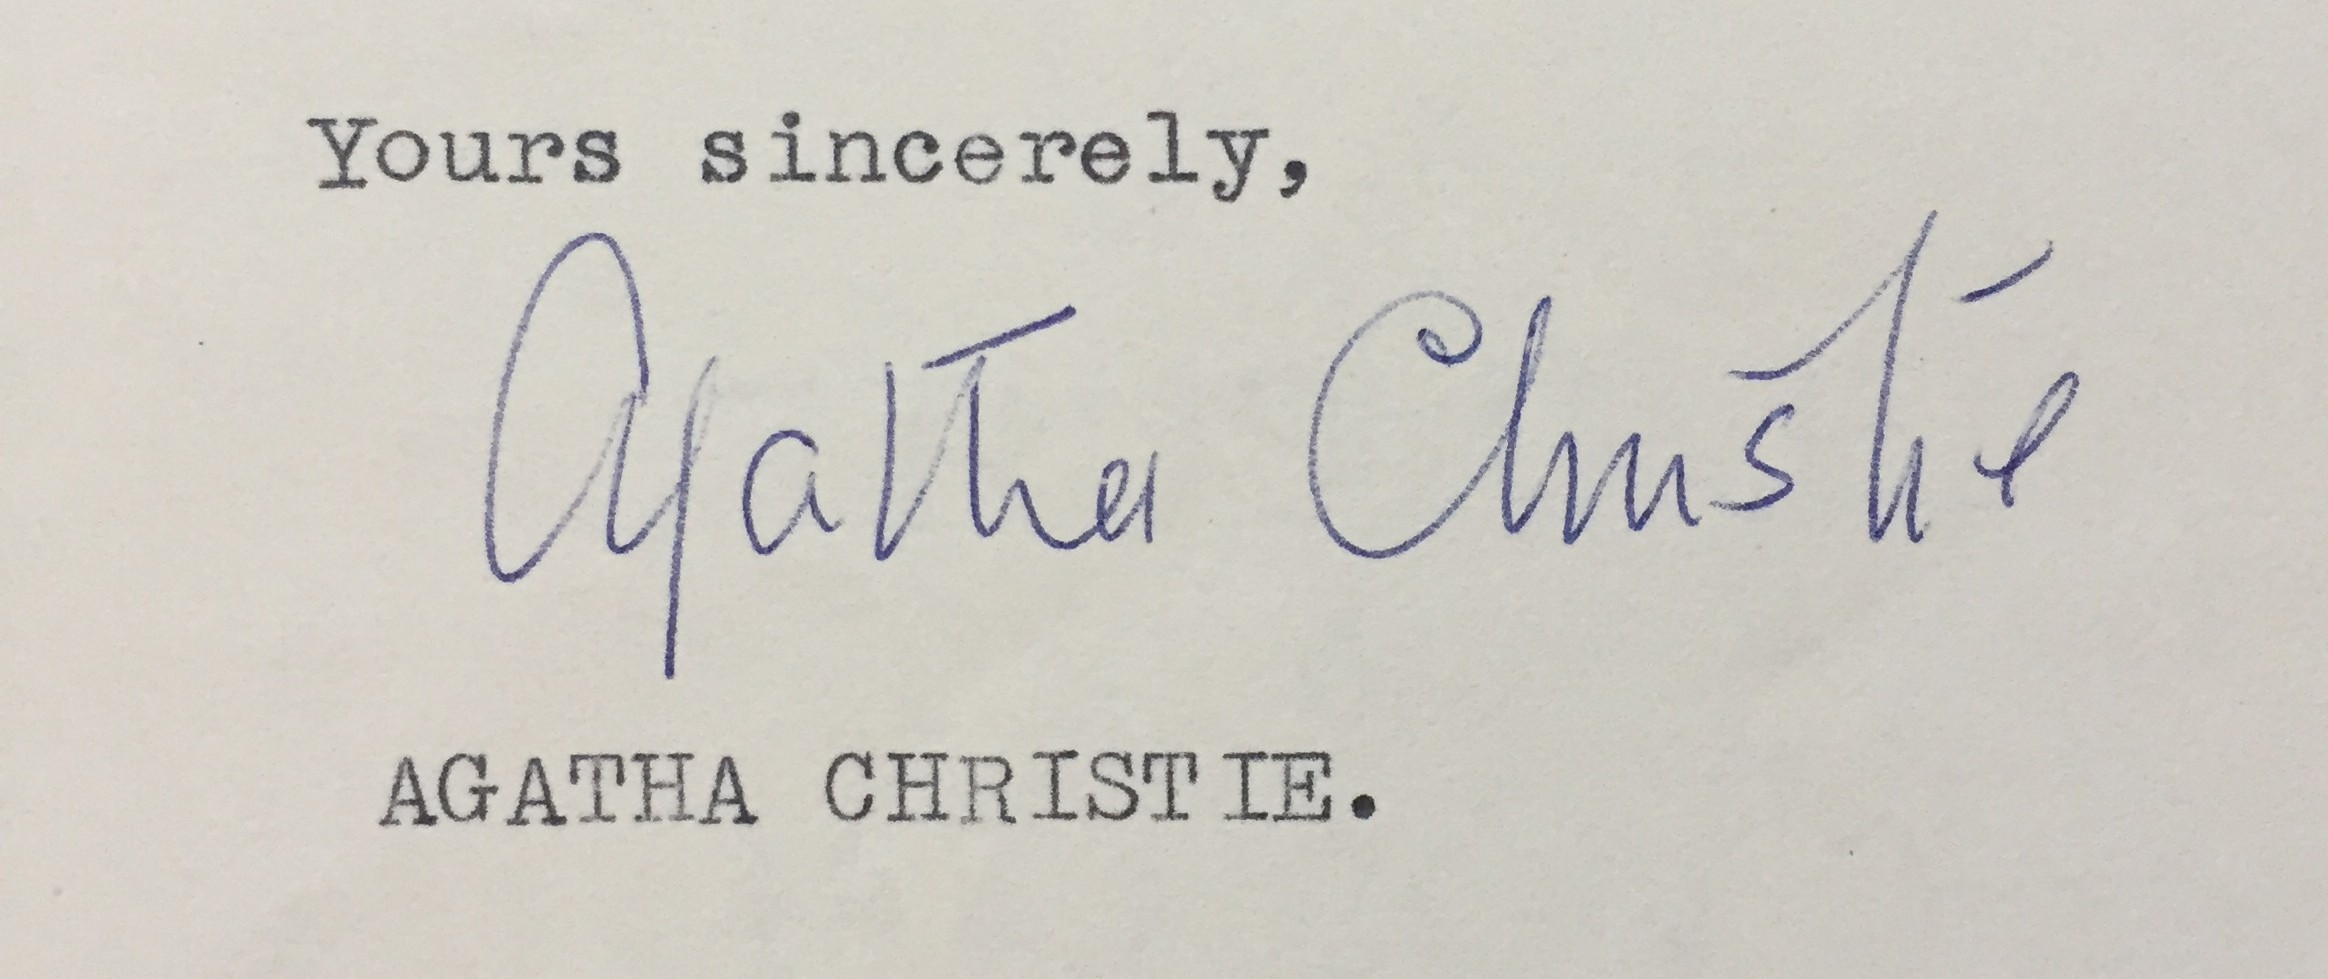 Yours sincerely,
Agatha Christie
AGATHA CHRISTIE.